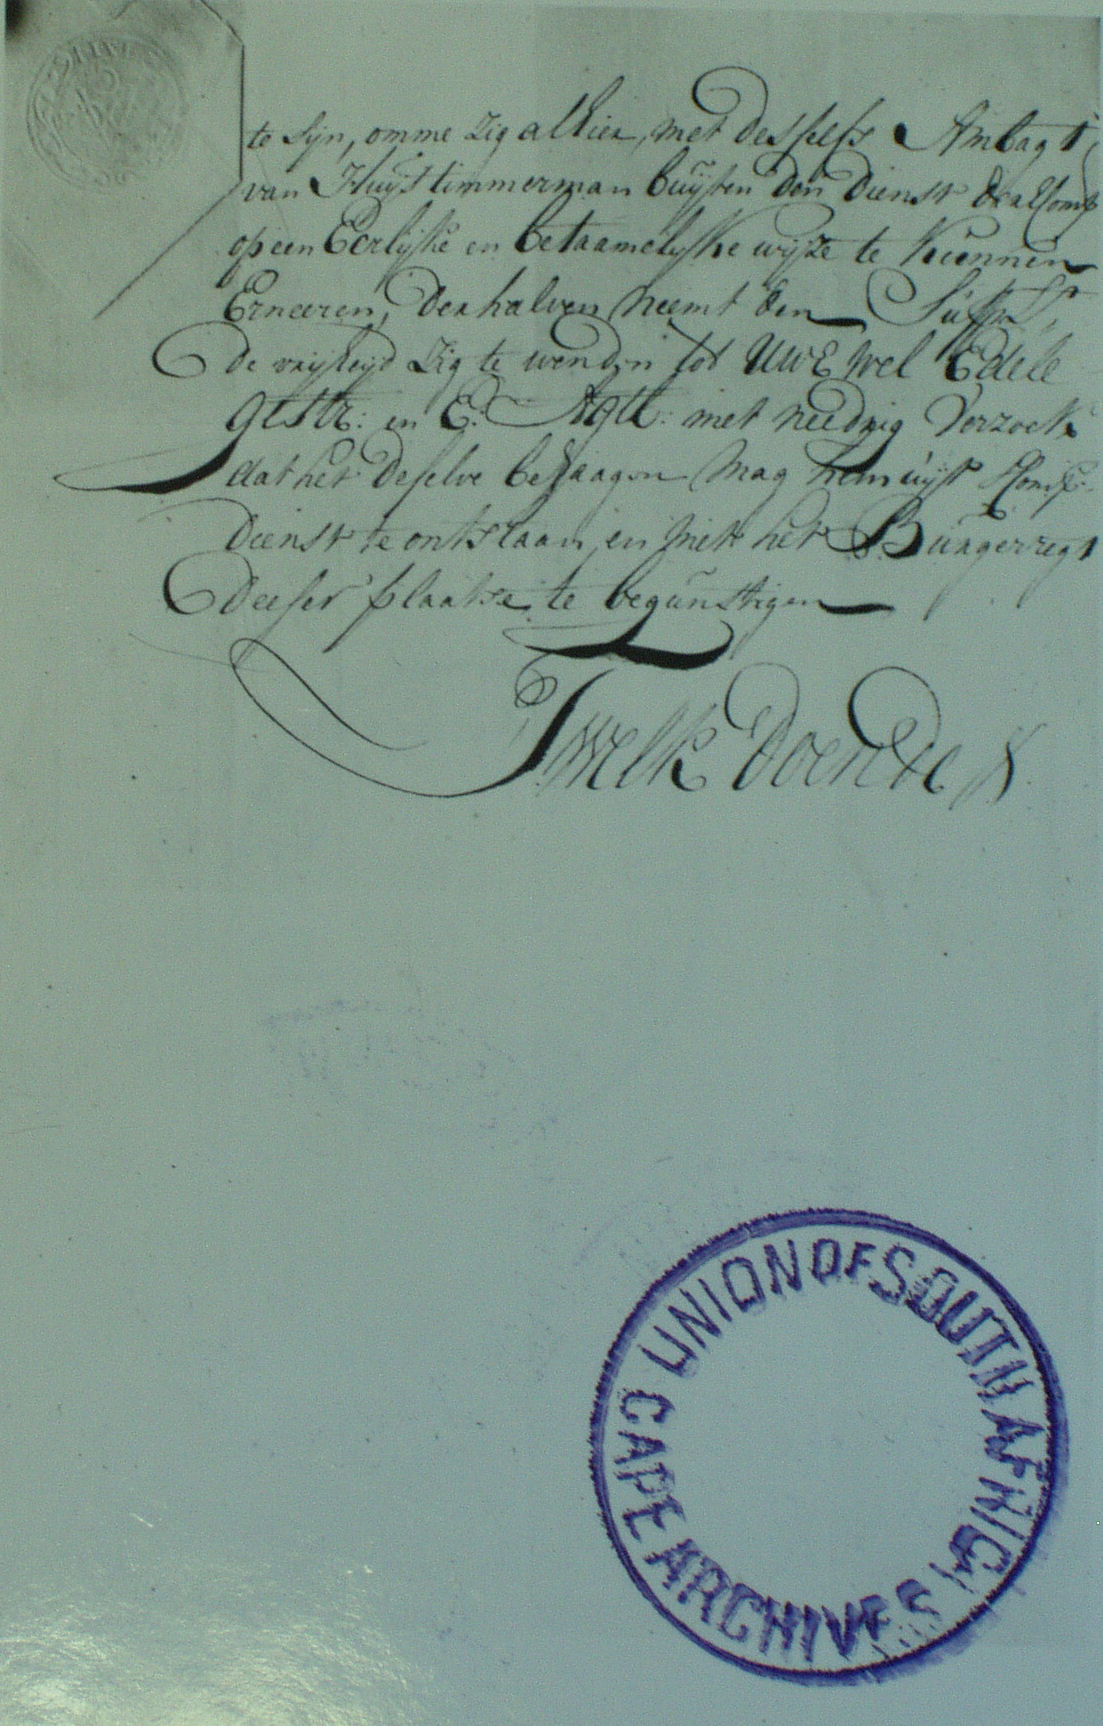 te sijn, omme zig alhier, met desselfs Ambagt
van Huijstimmerman buijten den dienst der Ed Comp
op een Eerlijke en betaamelijke wijse te kunnen
Erneeren, derhalven neemt den Supplt,
de vrijheijd zig te wenden tot UWE Wel Edele
Gestr: en E: Agtb: met needrig verzoek
dat het deselve behaagen mag hem uijt Comps
dienst te ontslaan, en met het Burgerregt
deeser plaatse te begunstigen
'T welk doende &
UNION OF SOUTH AFRICA
CAPE ARCHIVES